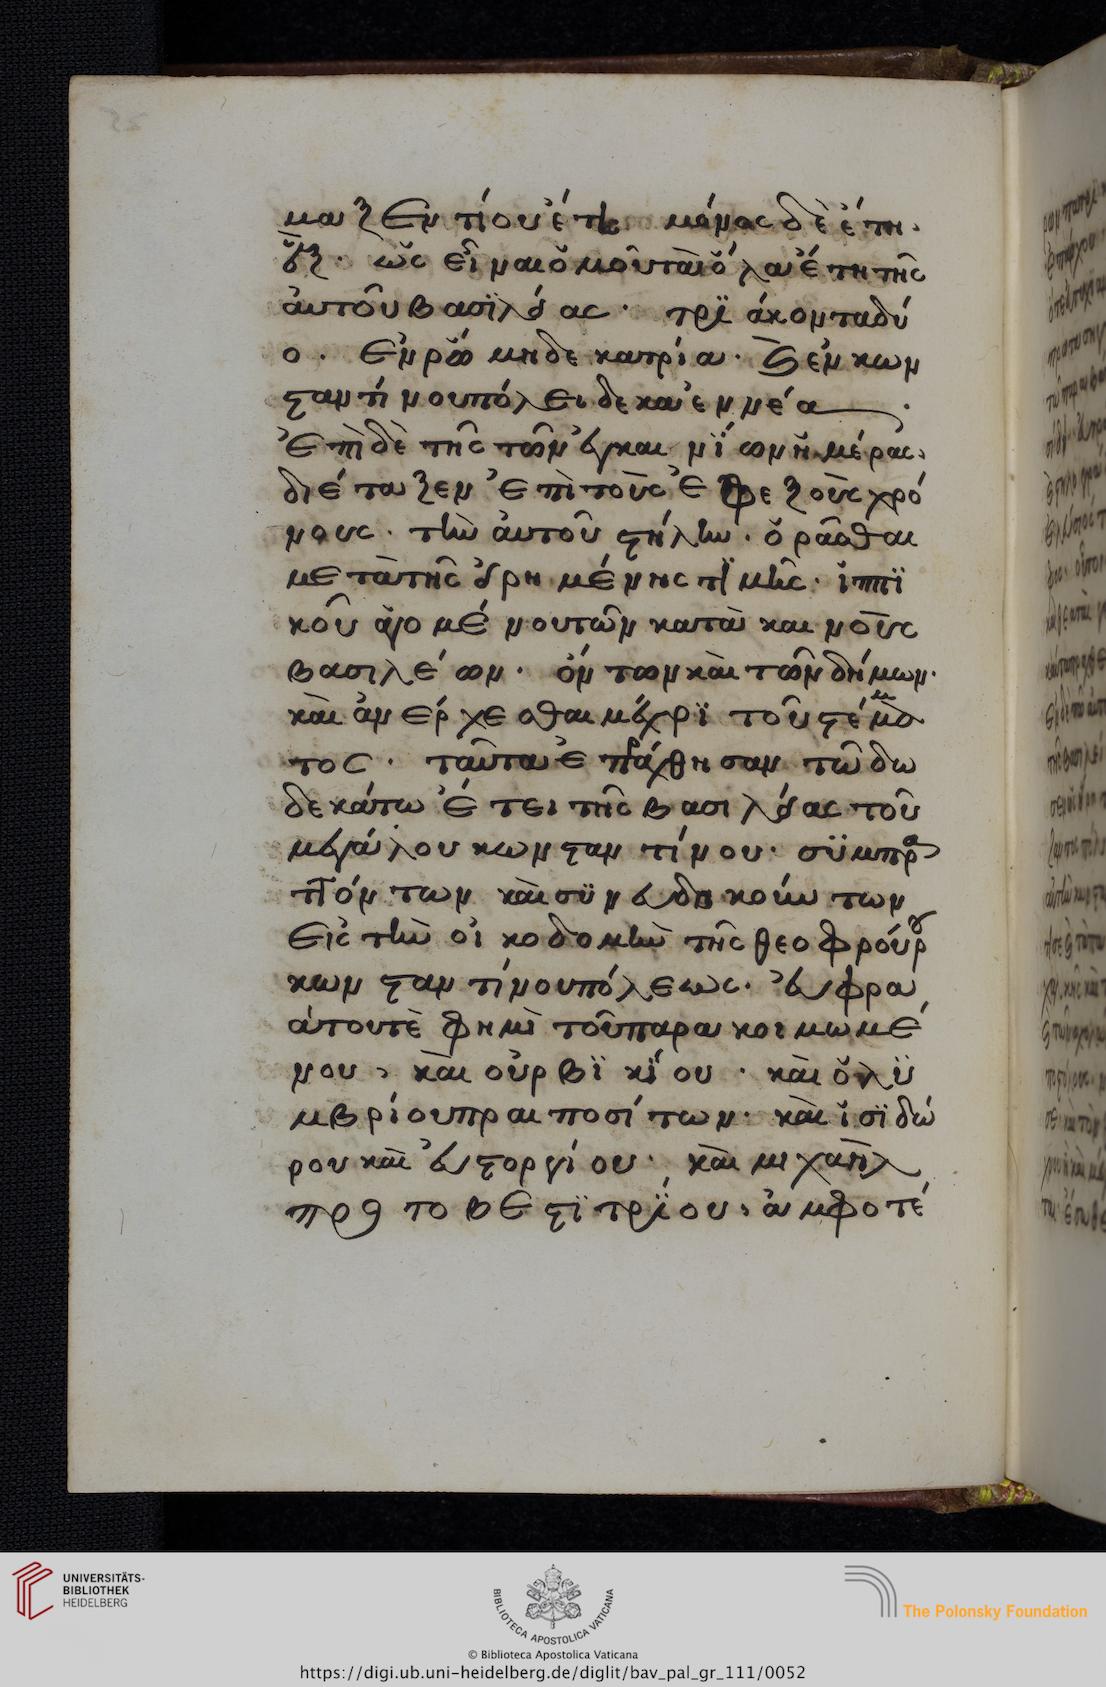 μαξεντίου ἔτη μόνος δὲ ἔτη.
ὡς εἶναι ὁμοῦ τὰ ὅλα ἔτη τῆς
ἀυτοῦ βασϊλείας· τρϊάκοντα δύ
ο. Ἐν ρώμη δεκατρία· Ϛ ἐν κων
ϛαντίνου πόλει δεκαἐννέα
Ἐπὶ δὲ τῆς τῶν ἐγκαινϊων ἡμέρας.
διέταξεν ἐπὶ τοὺς ἐφεξοὺς χρό
νους· τὴν ἀυτοῦ ϛήλην· ὁρᾶσθαι
μετὰ τῆς εἰρημένης τϊμῆς· ἵππϊ
κοῦ ἀγομένου τῶν κατὰ καινοὺς
βασιλέων· ὄντων κὰι τῶν δήμων·
κὰι ἀνέρχεσθαι μέχρϊ τοῦ ϛέμμα
τος· ταῦτα ἐπράχθησαν τῶ δω
δεκάτω ἔτει τῆς βασιλείας τοῦ
μεγάλου κωνϛαντίνου· σϋμπρα
ττόντων κὰι σϋνευδοκούντων
εἰς τὴν οἰκοδομὴν τῆς θεοφρούρου
κωνϛαντίνουπόλεως· ἐυφρα
άτου τὲ φημὶ τοῦ παρακοιμωμέ
νου, κὰι οὐρβϊκίου· κὰι ὀλϋ
μβρίου πραιποσίτων· κὰι ἰσϊδώ
ρου κὰι ἐυϛοργίου· κὰι μιχαὴλ
προτοβεϛϊτρϊίου, ἀμφοτέ
UNIVERSITÄTS-
BIBLIOTHEK
HEIDELBERG
BIBLIOTECA APOSTOLICA VATICANA
The Polonsky Foundation
© Biblioteca Apostolica Vaticana
https://digi.ub.uni-heidelberg.de/diglit/bav_pal_gr_111/0052